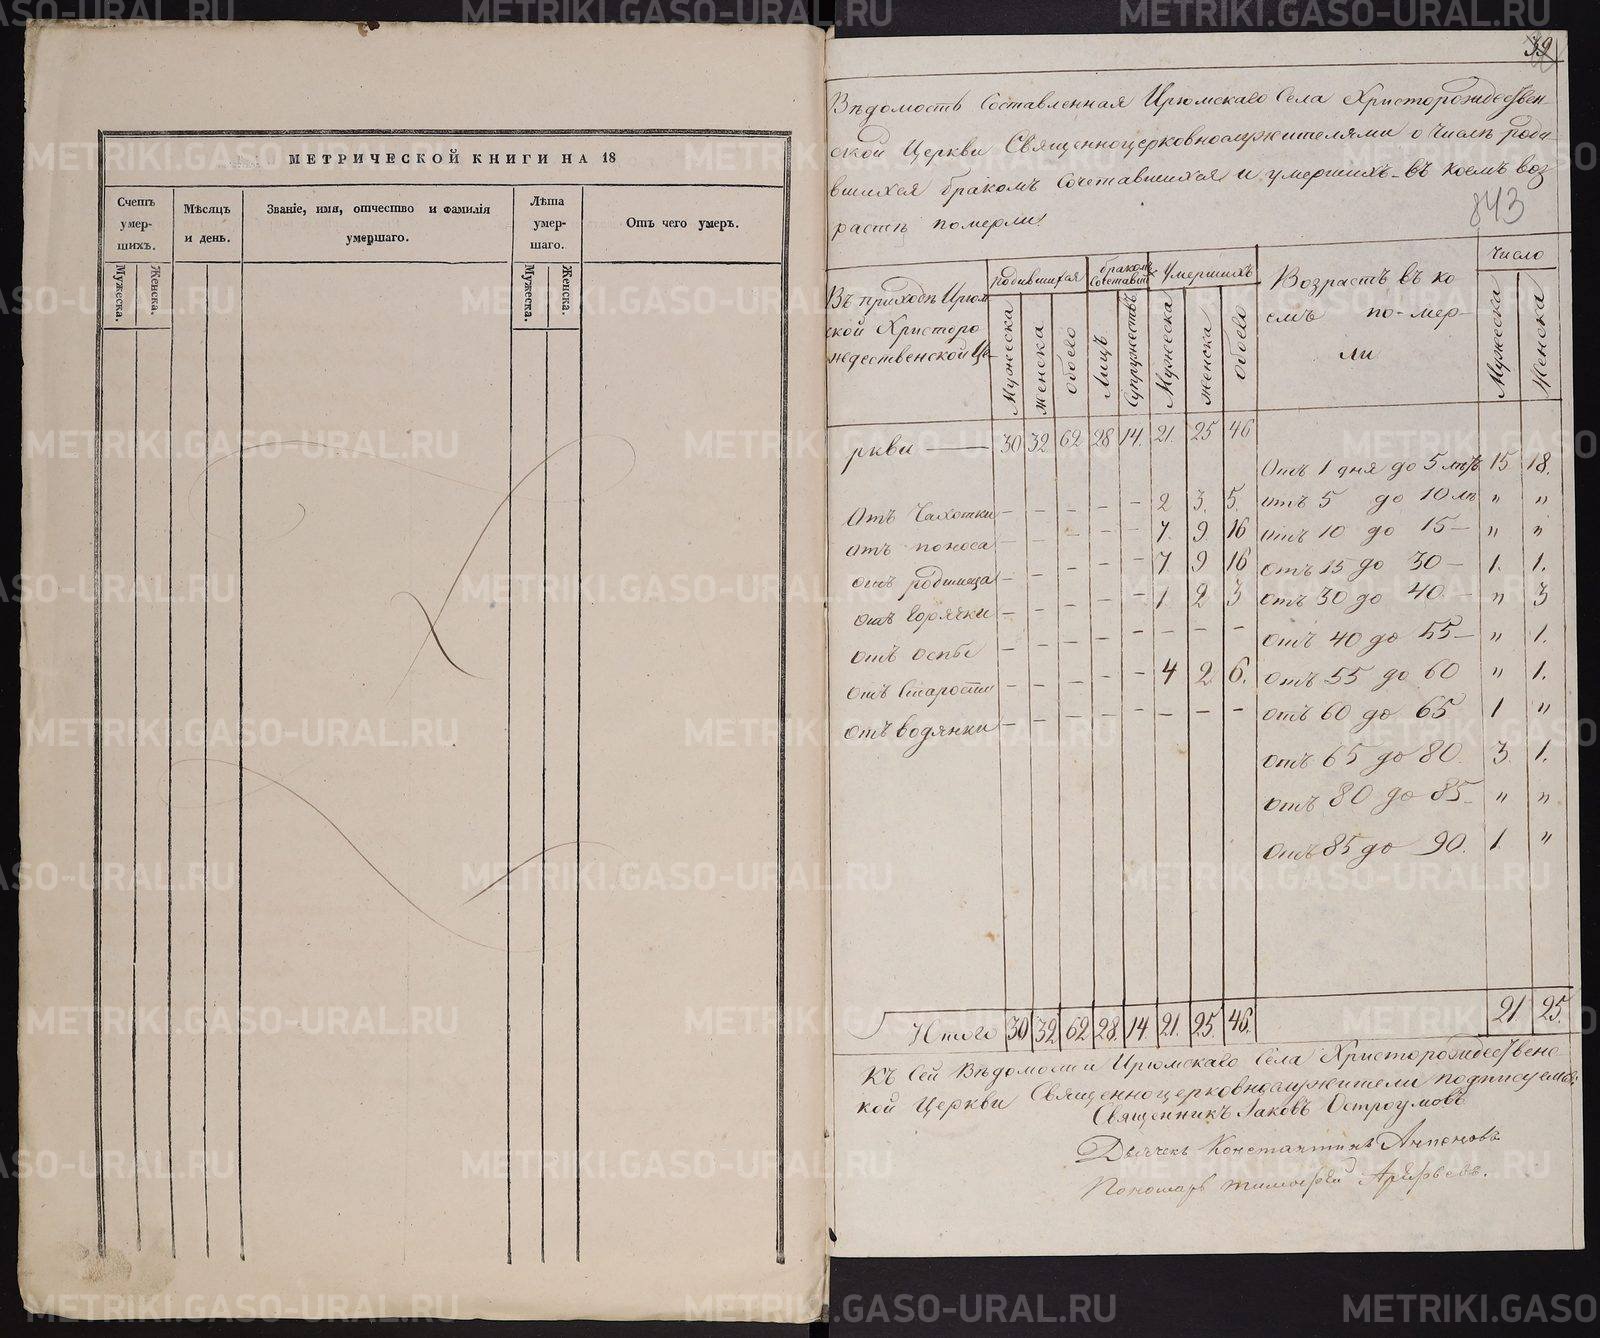 МЕТРИЧЕСКОЙ КНИГИ НА 18
Счетъ умер-шихъ.
Мѣсяцъ и день.
Званіе, имя, отчество и фамилія умершаго.
Лѣта умер-шаго.
Отъ чего умеръ.
Мужеска.
Женска.
Мужеска.
Женска.
39
Вѣдомость Составленная Ирюмскаго Села Христорождествен-
ской Церкви Священноцерковнослужителями о числѣ роди-
вшихся бракомъ Сочетавшихся и умершихъ - въ коемъ воз-
растѣ померли
843
Въ приходѣ Ирюм
ской Христоро
ждественской Це-
родившихся
бракомъ Сочетавши
Умершихъ
Возрастъ въ ко
емъ по-мер-
ли
Число
Мужеска
Женска
обоего
Лицъ
Супружествъ
Мужеска
Женска
Обоего
Мужеска
Женска
ркви — 30 32 62 28 14. 21. 25 46
Отъ 1 дня до 5 лѣтъ 15 18.
Отъ Чахотки - - - - - 2 3. 5.
отъ 5 до 10 лѣ " "
отъ поноса - - - - - 7. 9. 16
отъ 10 до 15 — " "
отъ родимца - - - - - 7 9 16
отъ 15 до 30 — 1. 1.
отъ Горячки - - - - - 1. 2 3
отъ 30 до 40. — " 3
отъ оспы - - - - - - - -
отъ 40 до 55 — " 1.
отъ Старости - - - - - 4 2 6.
отъ 55 до 60 " 1.
отъ водянки - - - - - - - -
отъ 60 до 65 1 "
отъ 65 до 80. 3. 1.
отъ 80 до 85. " "
отъ 85 до 90. 1. "
Итого 30 32 62 28. 14. 21. 25. 46. 21 25.
Къ Сей Вѣдомости Ирюмскаго Села Христорождествено
кой Церкви Священноцерковнослужители подписуемся:
Священникъ Іаковъ Остроумовъ
Дьячекъ Константинъ Антоновъ
Пономарь Тимофей Арефьевъ.
METRIKI.GASO-URAL.RU